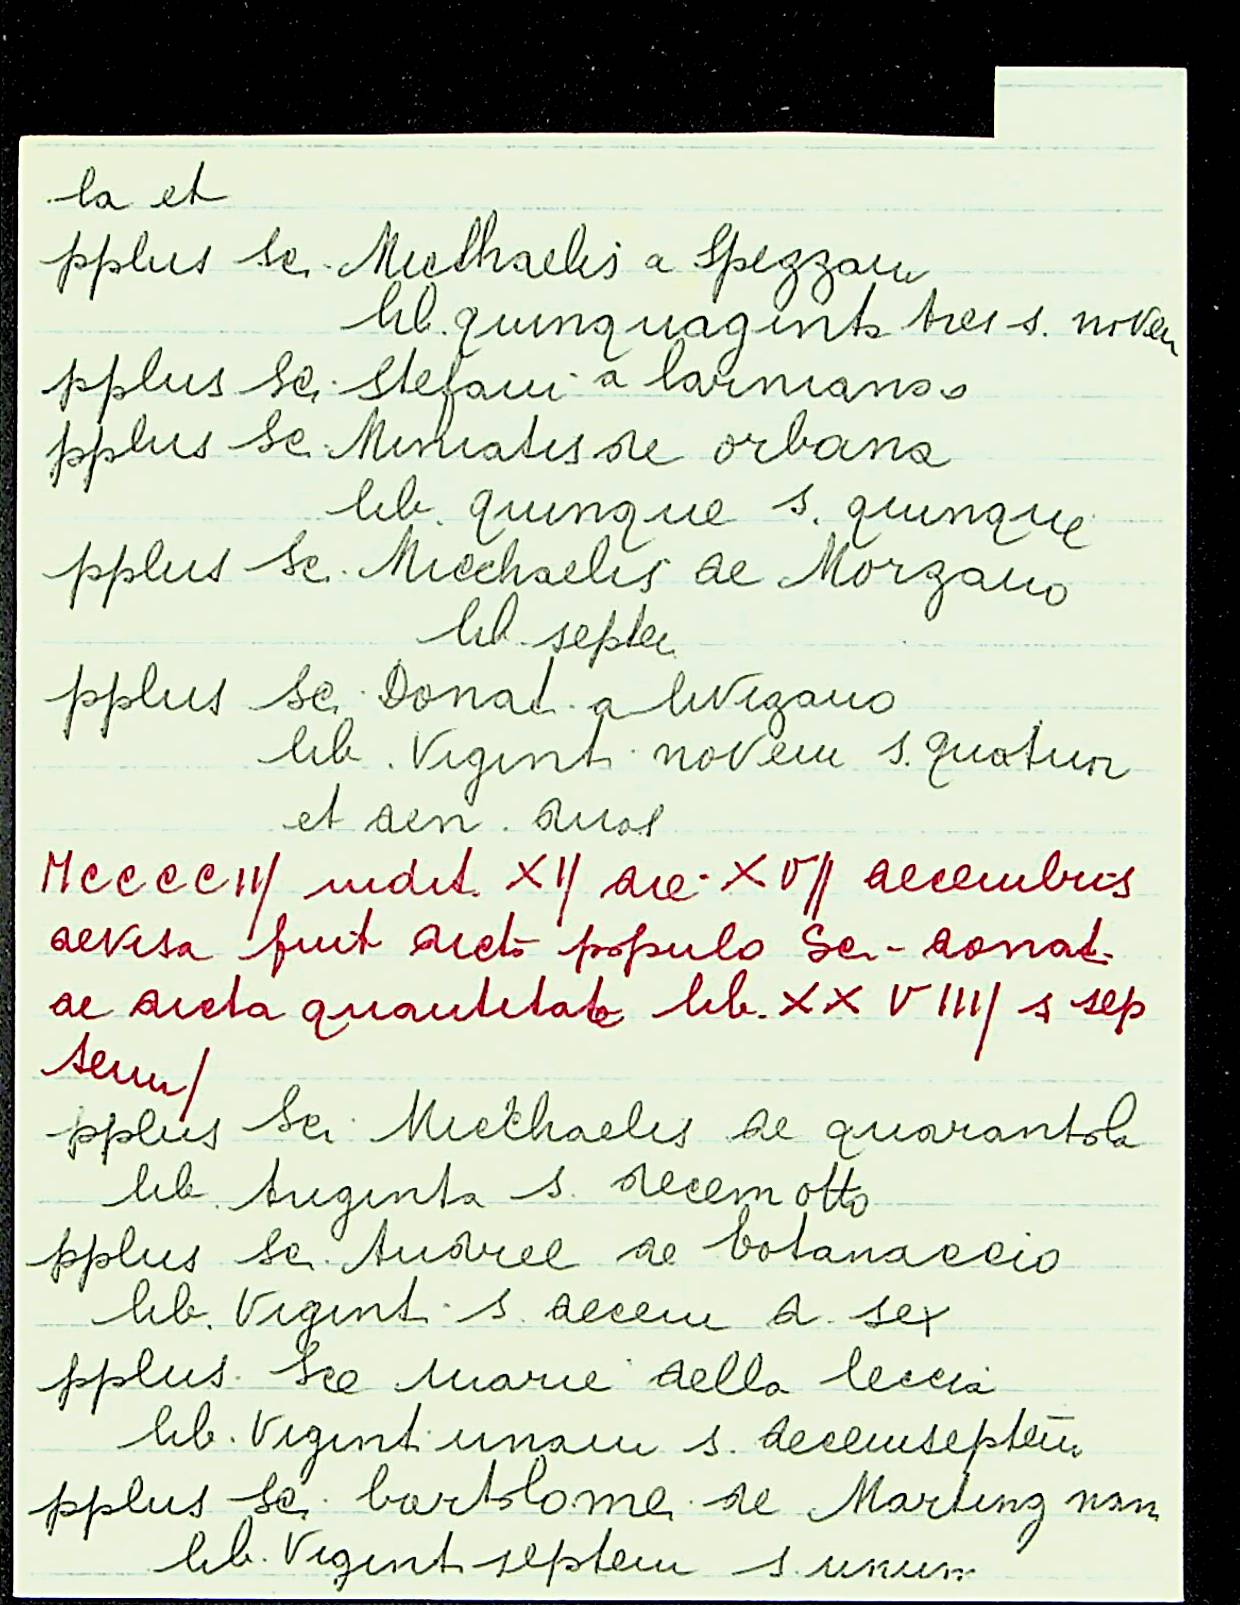 la et
pplus Sci Micchaelis a Spezzan
lib. quinquaginta tres s. noven
pplus Sci Stefani a larniano
pplus Sci Miniatis de orbana
lib. quinque s. quinque
pplus Sci Micchaelis de Morzano
lib septe
pplus Sci Donat. a livizano
lib. Vigint. novem s. quatuor
et den. duos
MCCCCIII/ indit. XII/ die XVII decembris
devisa fuit dicto populo Sci donat.
de dicta quantitate lib. XXVIIII/ s sep
tem/
pplus Sci Micchaelis de quarantola
lib triginta s. decem otto
pplus Sci Andree de botanaccio
lib. Vigint. s. decem d. sex
pplus. Sce marie della leccia
lib. Vigint unam s. decemseptem
pplus Sci bartolome de Martig nan
lib. Vigint septem s. unum